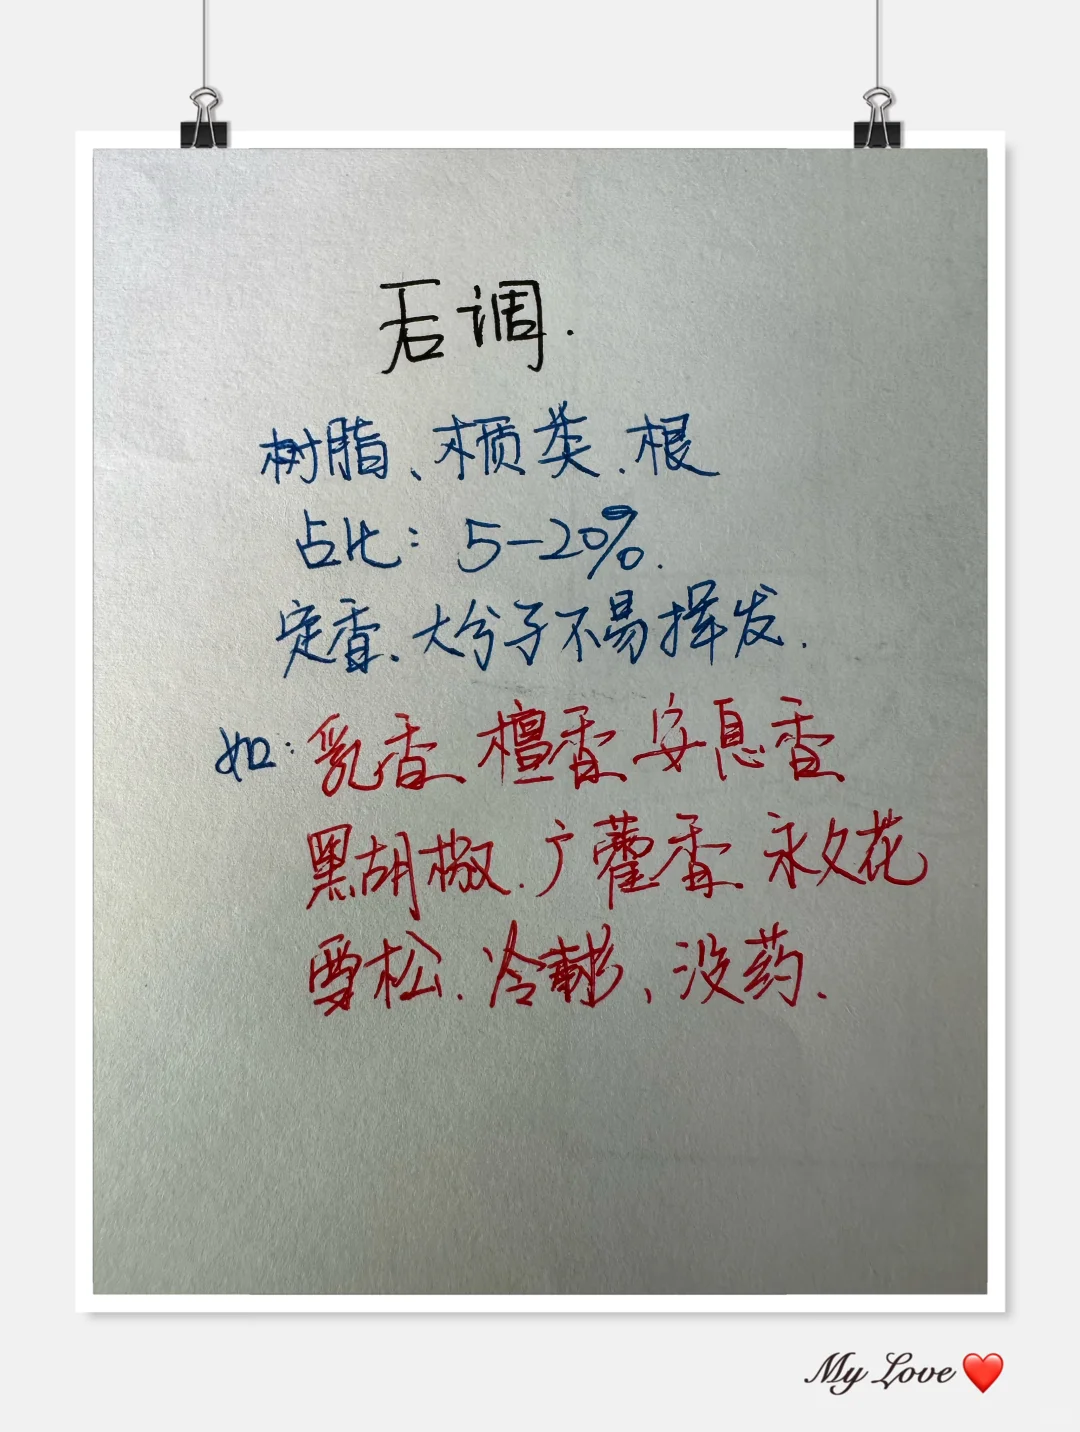 后调.
树脂、木质类.根
占比：5-20%.
定香.大分子不易挥发.
如：乳香.檀香.安息香
黑胡椒.广藿香.永久花
雪松.冷杉、没药.
My Love❤️